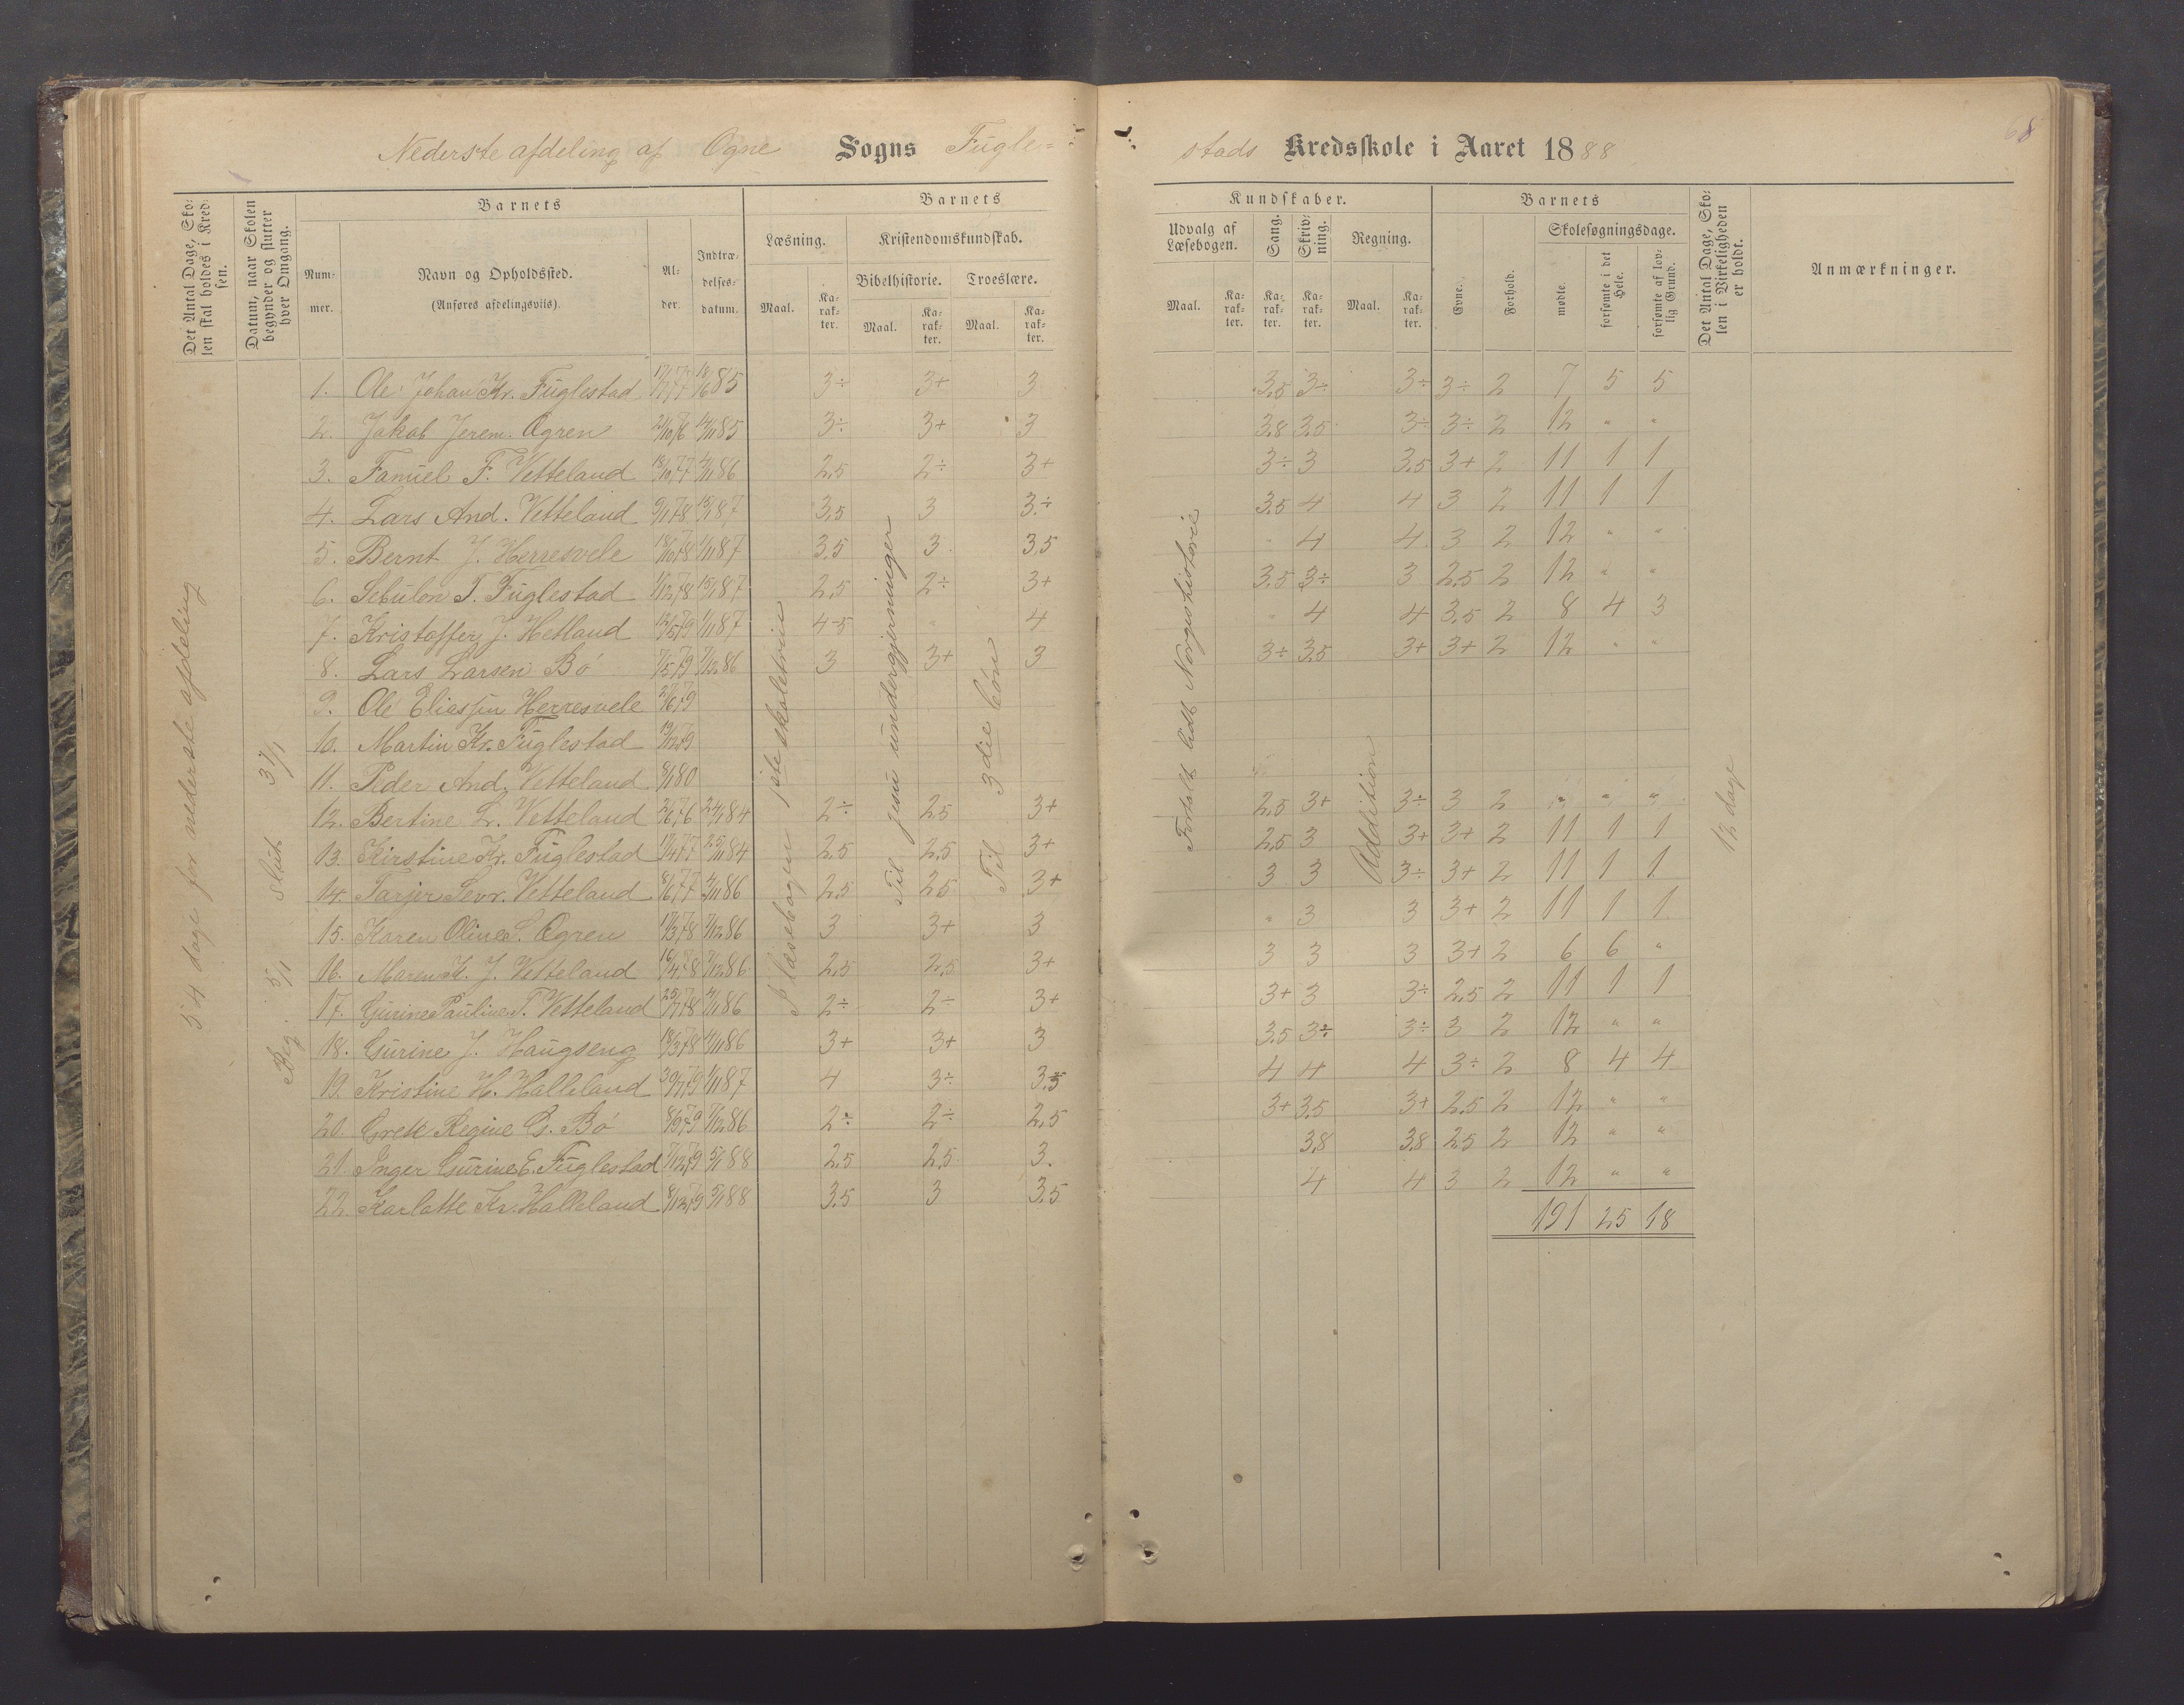 68
Nederste afdeling af Ogne Sogns Fugle-
stads Kredsskole i Aaret 1888
Det Antal Dage, Sko-
len skal holdes i Kred-
sen.
Datum, naar Skolen
begynder og slutter
hver Omgang.
Barnets
Num-
mer.
Navn og Opholdssted.
(Anføres afdelingsvils).
Al-
der.
Indtræ-
delses-
datum.
Barnets
Læsning.
Maal.
Ka-
rak-
ter.
Kristendomskundskab.
Bibelhistorie.
Maal.
Ka-
rak-
ter.
Troeslære.
Maal.
Ka-
rak-
ter.
Kundskaber.
Udvalg af
Læsebogen.
Maal.
Ka-
rak-
ter.
Sang.
Ka-
rak-
ter.
Skriv-
ning.
Ka-
rak-
ter.
Regning.
Maal.
Ka-
rak-
ter.
Barnets
Evne.
Forhold.
Skolesøgningsdage.
mødte.
forsømte i det
Hele.
forsømte af lov-
lig Grund.
Det Antal Dage, Sko-
len i Virkeligheden
er holdt.
Anmærkninger.
54 dage for nederste afdeling
Beg. 5/1 Slut 31/1
I læsebogen 1ste skoletrin
Til jesu undergjerninger
Til 3die bøn
Fortalt lidt Norgushistorie
Addition
12 dage
1. Ole Johan Kr. Fuglestad 17/1 77 18/6 85 3÷ 3+ 3 3,5 3÷ 3÷ 3÷ 2 7 5 5
2. Jakob Jerem. Ogren 2/10 76 14/11 85 3÷ 3+ 3 3,8 3,5 3÷ 3÷ 2 12 " "
3. Fanuel F. Vetteland 18/10 77 4/11 86 2,5 2÷ 3+ 3÷ 3 3,5 3+ 2 11 1 1
4. Lars And. Vetteland 9/1 78 15/1 87 3,5 3 3÷ 3,5 4 4 3 2 11 1 1
5. Bernt J. Herresvele 18/10 78 1/11 87 3,5 3 3,5 " 4 4 3 2 12 " "
6. Sebulon T. Fuglestad 1/12 78 15/1 87 2,5 2÷ 3+ 3,5 3÷ 3 2,5 2 12 " "
7. Kristoffer J. Hetland 12/5 79 1/11 87 4-5 " 4 " 4 4 3,5 2 8 4 3
8. Lars Larsen Bø 7/5 79 7/12 86 3 3+ 3 3÷ 3,5 3+ 3+ 2 12 " "
9. Ole Eliassen Herresvele 2/6 79
10. Martin Kr. Fuglestad 19/12 79
11. Peder And. Vetteland 8/1 80
12. Bertine L. Vetteland 2/6 76 24/1 84 2÷ 2,5 3+ 2,5 3+ 3÷ 3 2 " " "
13. Kirstine Kr. Fuglestad 1/4 77 25/11 84 2,5 2,5 3+ 2,5 3 3+ 3+ 2 11 1 1
14. Tarjer Sevr. Vetteland 8/6 77 4/11 86 2,5 2,5 3+ 3 3 3÷ 3+ 2 11 1 1
15. Karen Oline S. Ogren 1/3 78 7/12 86 3 3+ 3 " 3 3 3+ 2 11 1 1
16. Maren K. J. Vetteland 16/4 78 7/12 86 2,5 2,5 3+ 3 3 3 3+ 2 6 6 "
17. Gurine Pauline F. Vetteland 25/7 78 4/11 86 2÷ 2÷ 3+ 3+ 3 3÷ 2,5 2 11 1 1
18. Gurine J. Haugseng 18/3 78 4/11 86 3+ 3+ 3 3,5 3÷ 3÷ 3 2 12 " "
19. Kristine H. Halleland 30/7 79 1/11 87 4 3÷ 3,5 4 4 4 3÷ 2 8 4 4
20. Grete Regine G. Bø 8/9 79 7/12 86 2÷ 2÷ 2,5 3+ 3,5 3+ 2,5 2 12 " "
21. Inger Gurine E. Fuglestad 7/12 79 5/1 88 2,5 2,5 3. 3,8 3,8 2,5 2 12 " "
22. Karlatte Kr. Halleland 8/12 79 5/1 88 3,5 3 3,5 4 4 3 2 12 " "
191 25 18